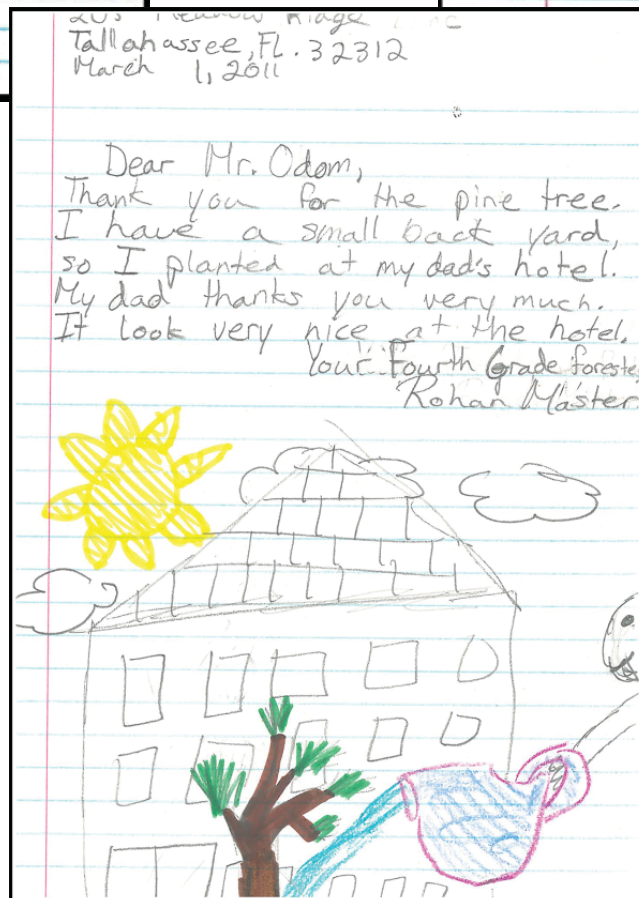 Ridge
Tallahassee, FL. 32312
March 1, 2011
Dear Mr. Odom,
Thank you for the pine tree.
I have a small back yard,
so I planted at my dad's hotel.
My dad thanks you very much.
It look very nice at the hotel.
Your Fourth Grade foreste
Rohan Master